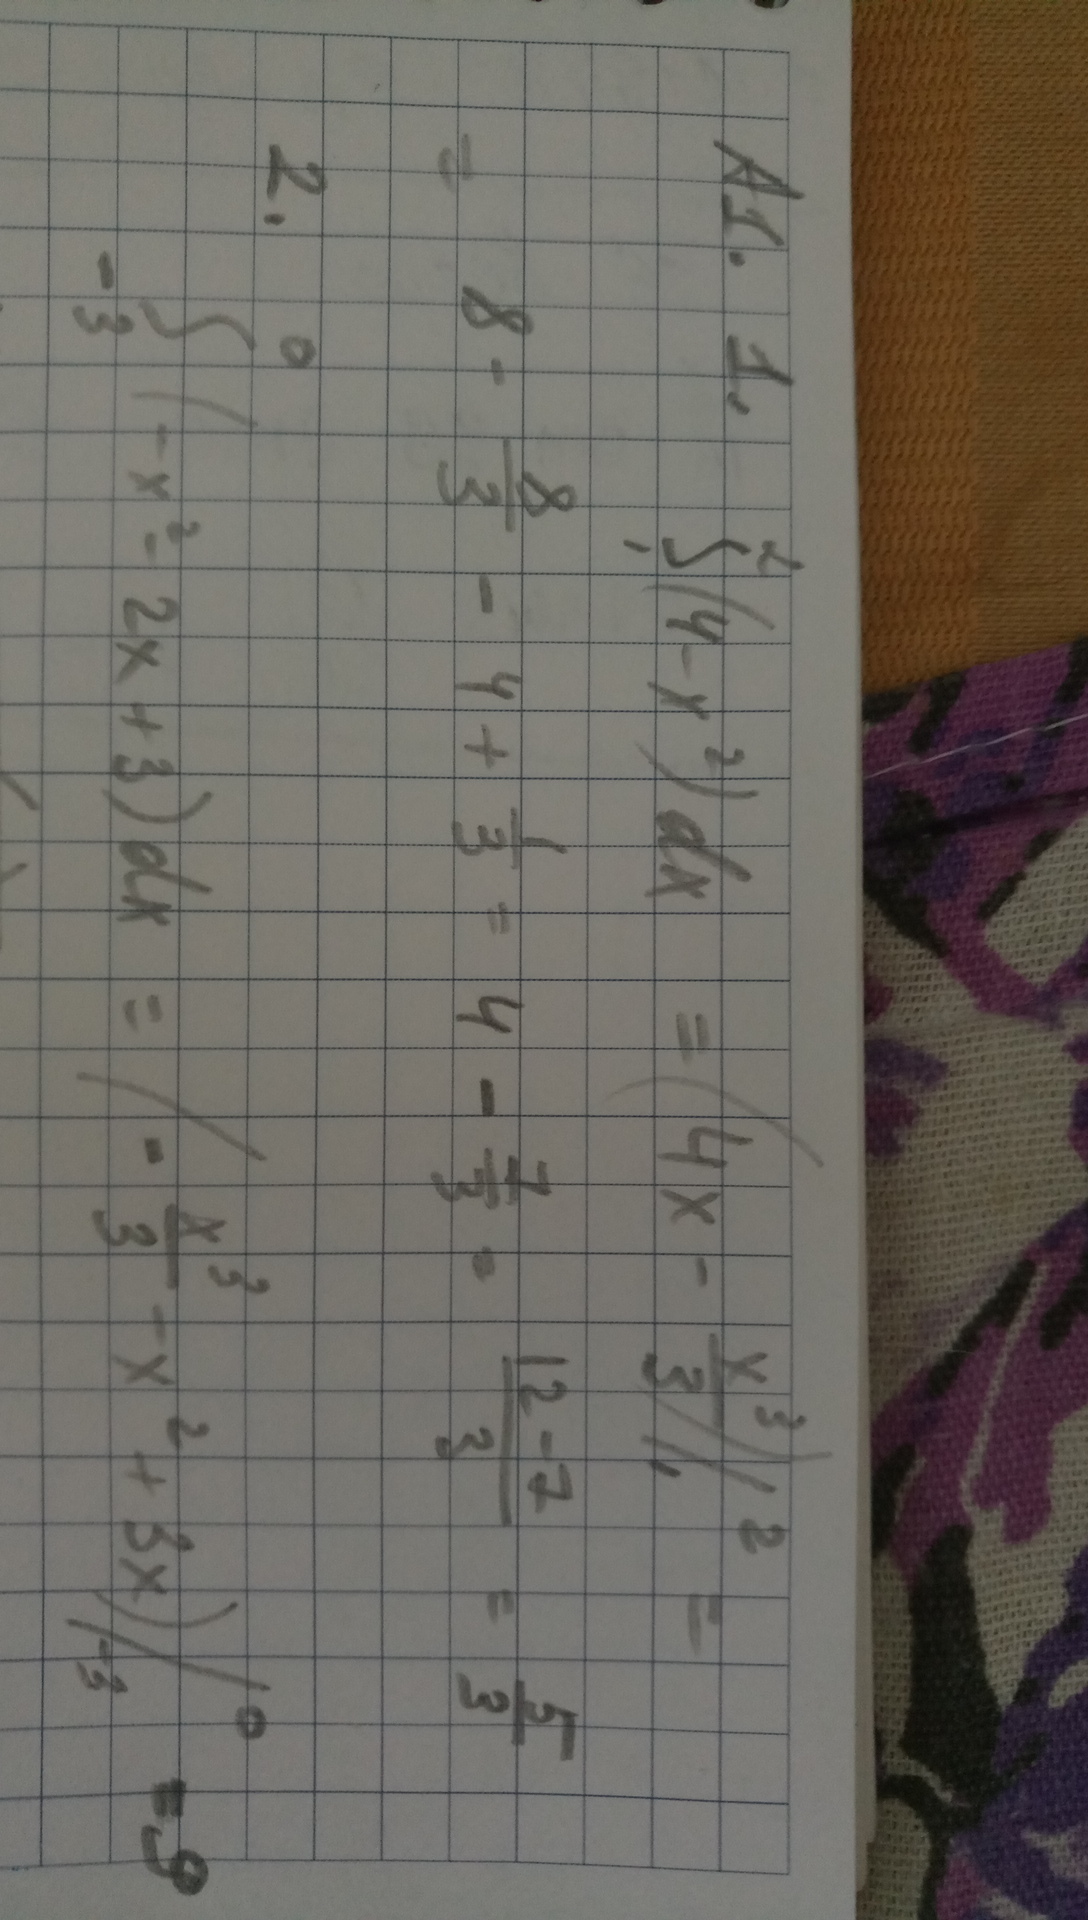 A1. 1. ∫₁² (4-x²)dx = (4x - x³/3)|₁² =
= 8 - 8/3 - 4 + 1/3 = 4 - 7/3 = (12-7)/3 = 5/3
2. ∫₋₃⁰ (-x²-2x+3)dx = (-x³/3 - x² + 3x)|₋₃⁰ = 9